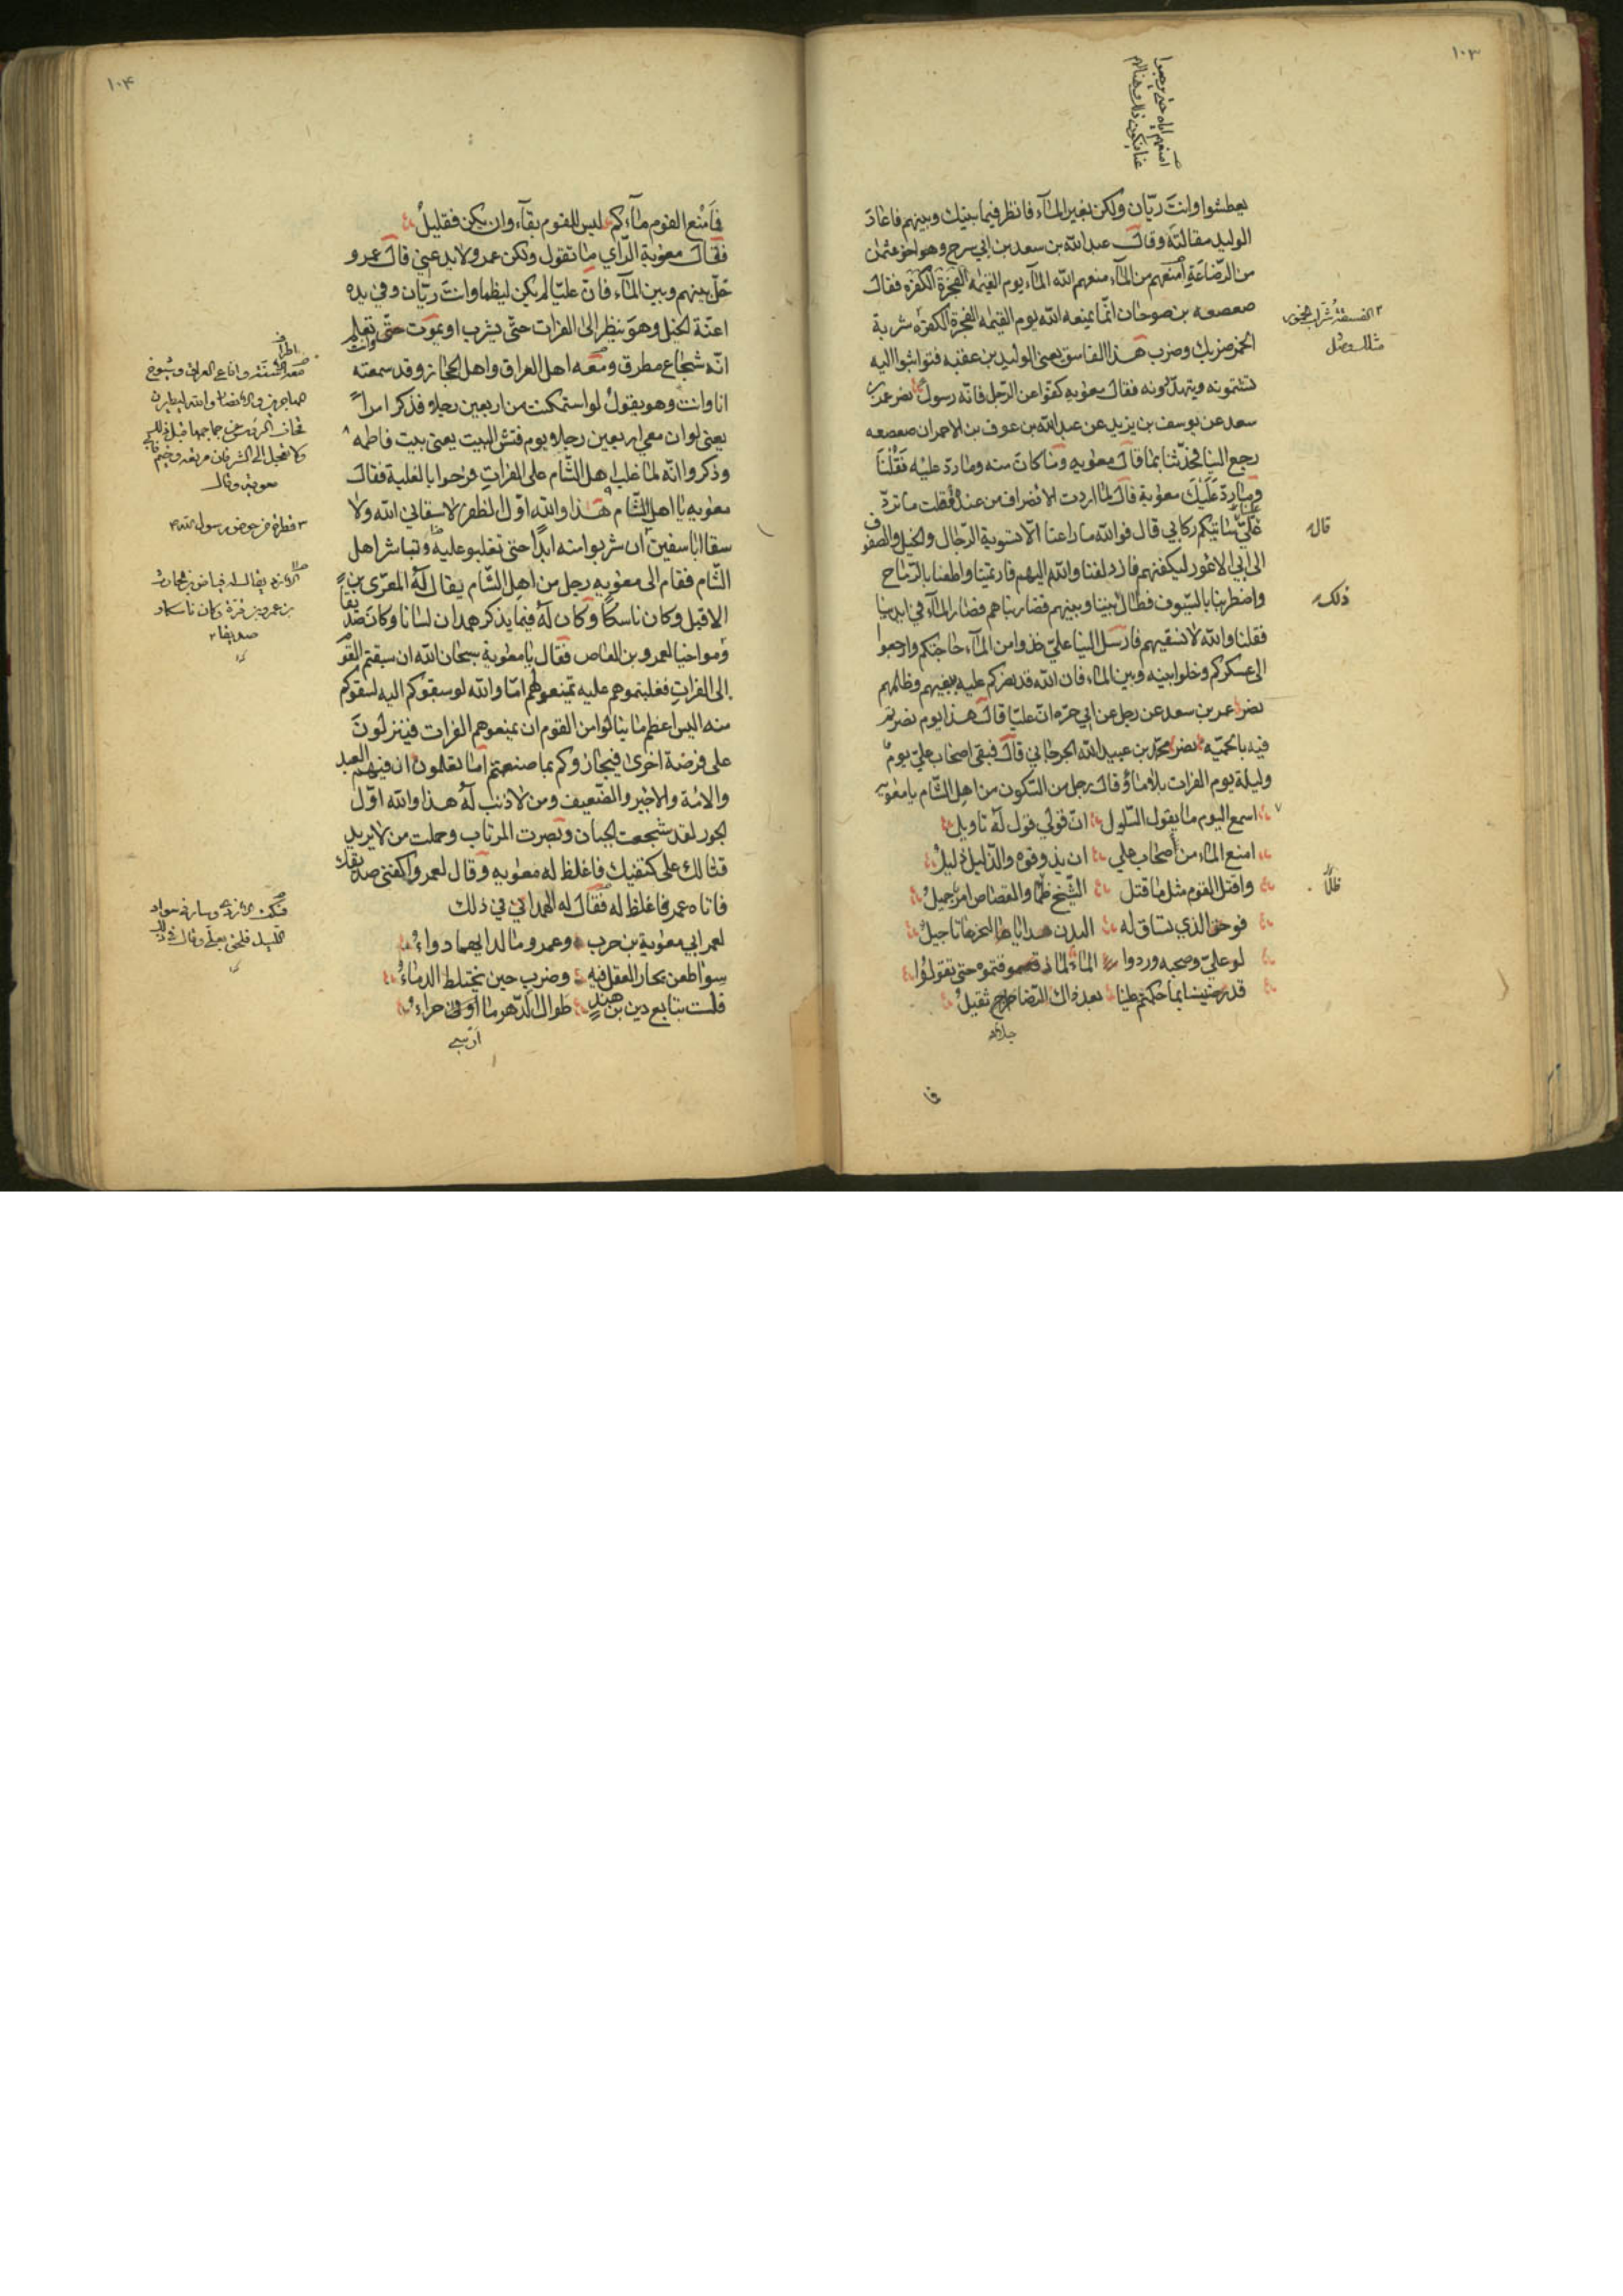 ١٠٣
يعطشوا وانت ريّان ولكن بغير المآء فانظر فيما بينك وبينهم فاعاد
الوليد مقالته وقال عبد الله بن سعد بن ابي سرح وهو اخو عثمان
من الرّضاعة امنعهم من المآء منعهم الله المآء يوم القيمه الفجرة الكفره فقال
صعصعه بن صوحان انّما يمنعه الله يوم القيمه الفجرة الكفره شربة
الخمر ضربك وضرب هذا الفاسق يعني الوليد بن عقبه فتواثبوا اليه
يشتمونه ويتهدّدونه فقال معويه كفّوا عن الرّجل فانّه رسول نصر عمر بن
سعد عن يوسف بن يزيد عن عبد الله بن عوف بن الاحمر ان صعصعه
رجع الينا فحدّثنا بما قال معويه وما كان منه وما ردّ عليه فقلنا
وما ردّ عليك معوية قال لما اردت الانصراف من عنده قلت ما تردّ
عليّ قال سياتيكم رايي قال فوالله ما راعنا الّا تسوية الرّجال والخيل والصفوف
الى ابي الاعور ليكفهم فازدلفنا والله اليهم فارتمينا واطعنا بالرّماح
واضطربنا بالسّيوف فطال بيننا وبينهم فضاربناهم فصار المآء في ايدينا
فقلنا والله لا نسقيهم فارسل الينا عليّ خذوا من المآء حاجتكم وارجعوا
الى عسكركم وخلوا بينه وبين المآء فان الله قد نصركم عليه ببغيهم وظلمهم
نصر عمر بن سعد عن رجل عن ابي حرّه انّ عليّا قال هذا يوم نصرتم
فيه بالحميّه نصر محمّد بن عبيد الله الجرجاني قال فبقى اصحاب عليّ يوم
وليلة يوم الفرات بلا ماء وقال رجل من السّكون من اهل الشّام يا معوية
اسمع اليوم ما يقول السّلول انّ قولي قول له تاويل
امنع المآء من أصحاب علي ان يذوقوه والذّليل ذليل
واقتل القوم مثل ما قتل الشّيخ ظما والقصاص امر جميل
فوحق الذي يساق له البدن هدايا
لو عليّ وصحبه وردوا المآء لما ذقتموه حتى تقولوا
قد رضينا بما حكمتم علينا بعد ذاك الرّضا جلاد ثقيل
الفسقة شرّاب الخمور
قال
ذلك
ظلما
١٠۴
فامنع القوم مآءكم ليس للقوم بقآء وان يكن فقليل
فقال معوية الرّأي ما تقول ولكن عمرو لا يدعني قال عمرو
خلّ بينهم وبين المآء فانّ عليّا لم يكن ليظما وانت ريّان وفي يده
اعنّة الخيل وهو ينظر الى الفرات حتّى يشرب او يموت وانت تعلم
انّه شجاع مطرق ومعه اهل العراق واهل الحجاز وقد سمعته
انا وانت وهو يقول لو استمكنت من اربعين رجلا فذكر امراً
يعني لو ان معي اربعين رجلا يوم فتّش البيت يعني بيت فاطمه
وذكروا انّه لما غلب اهل الشّام على الفرات فرحوا بالغلبة فقال
معويه يا اهل الشّام هذا والله اوّل الظفر لا سقاني الله ولا
سقا ابا سفين ان شربوا منه ابدًا حتى يغلبو عليه وتباشر اهل
الشّام فقام الى معويه رجل من اهل الشّام يقال له المعرّى بن
الاقبل وكان ناسكًا وكان له فيما يذكر همدان لسانا وكان صديقا
ومواخيا لعمرو بن العاص فقال يا معوية سبحان الله ان سبقتم القوم
الى الفرات فغلبتموهم عليه تمنعوهم اما والله لو سبقوكم اليه لسقوكم
منه اليس اعظم ما ينالوا من القوم ان يمنعوهم الفرات فينزلون
على فرضة اخرى فيجازوكم بما صنعتم اما تعلمون ان فيهم العبد
والامة والاجير والضّعيف ومن لا ذنب له هذا والله اوّل
الجور لقد شجعت الجبان وبصرت المرتاب وحملت من لا يريد
قتالك على كتفيك فاغلظ له معويه وقال لعمرو اكفني صديقك
فاتاه عمر فاغلظ له فقال له الهمداني في ذلك
لعمر ابي معوية بن حرب وعمرو ما لدايهما دواء
سوا طعن يحار العقل فيه وضرب حين يختلط الدماء
فلست بتابع دين بن هند طوال الدّهر ما اوفى حراء
معويه وقال
صديقا